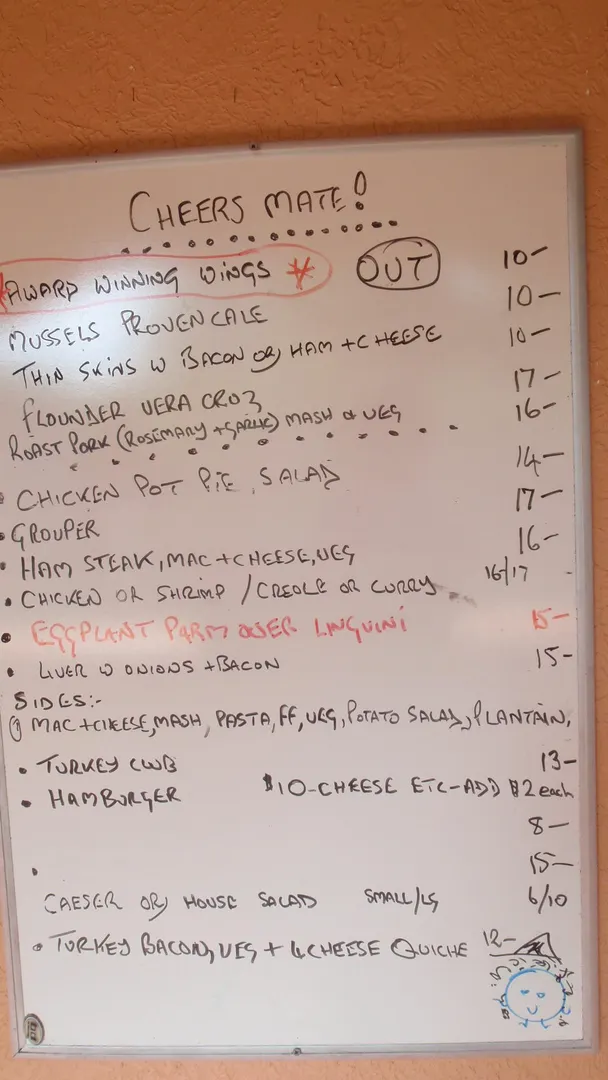 CHEERS MATE!
*AWARD WINNING WINGS * OUT 10-
MUSSELS PROVENCALE 10-
THIN SKINS W BACON OR HAM + CHEESE 10-
FLOUNDER VERA CROZ 17-
ROAST PORK (ROSEMARY + GARLIC) MASH & VEG 16-
• CHICKEN POT PIE, SALAD 14-
• GROUPER 17-
• HAM STEAK, MAC + CHEESE, VEG 16-
• CHICKEN OR SHRIMP / CREOLE OR CURRY 16/17
• EGGPLANT PARM OVER LINGUINI 15-
• LIVER W ONIONS + BACON 15-
SIDES:-
MAC + CHEESE, MASH, PASTA, FF, VEG, POTATO SALAD, PLANTAIN,
• TURKEY CLUB 13-
• HAMBURGER $10-CHEESE ETC-ADD $2 each
8-
• 15-
CAESER OR HOUSE SALAD SMALL/LG 6/10
• TURKEY BACON, VEG + 4 CHEESE QUICHE 12-